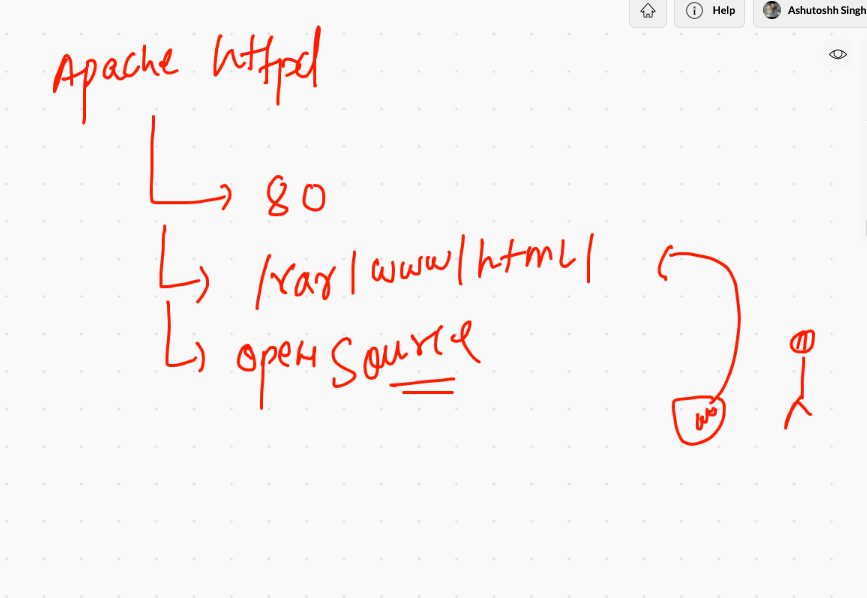 Help
Ashutoshh Singh
Apache httpd
80
/var/www/html/
open source